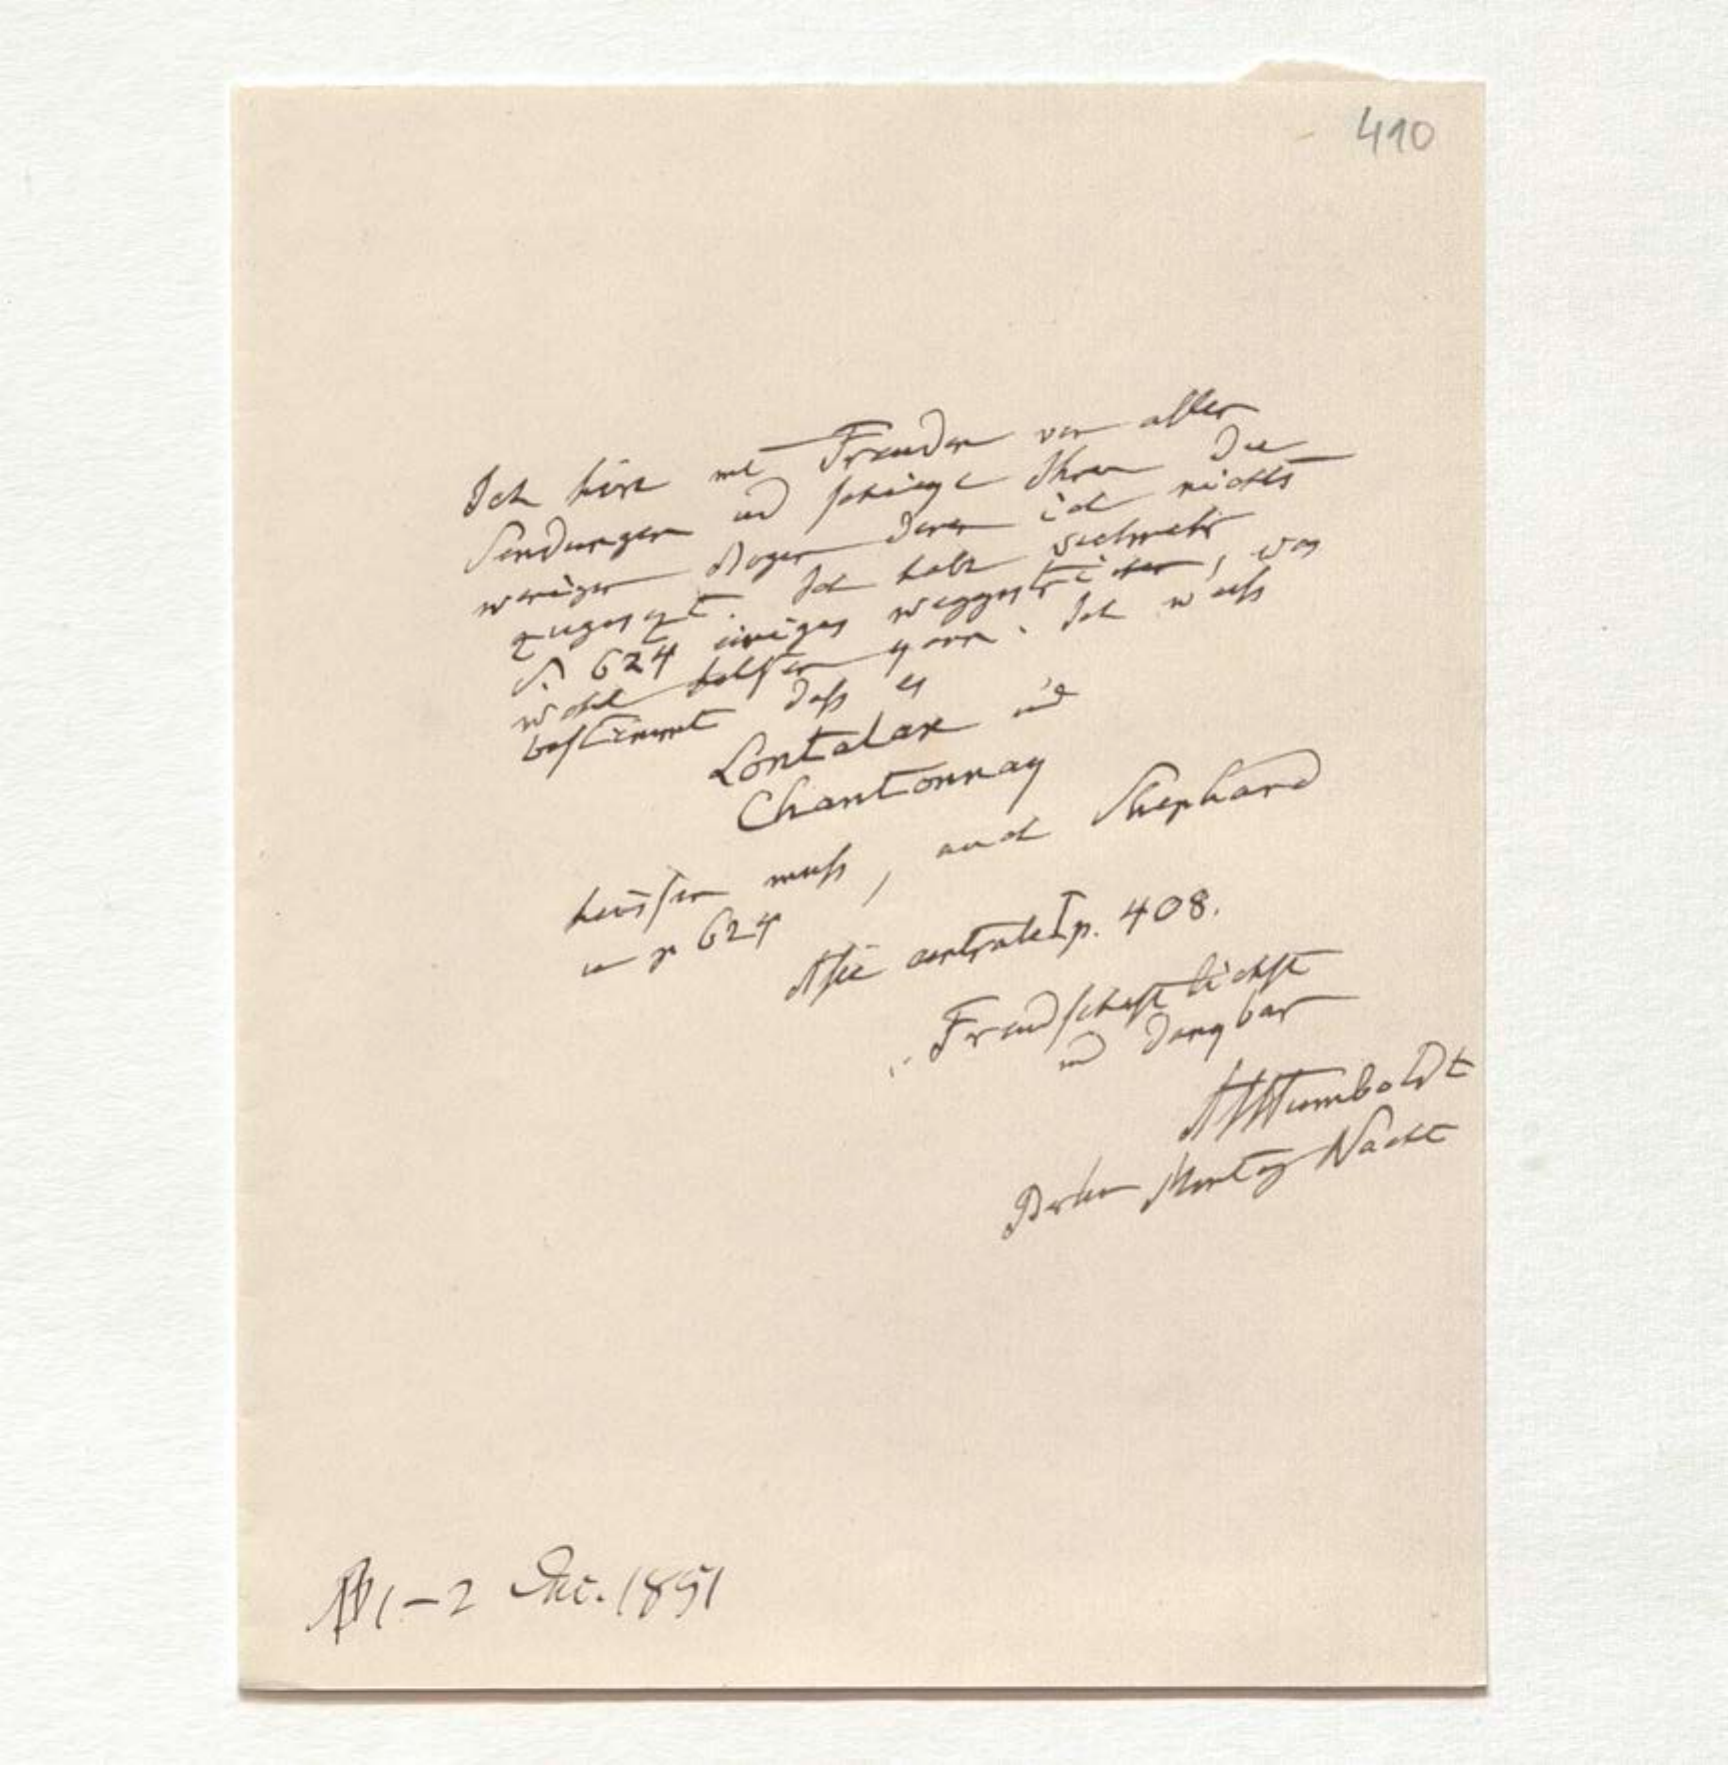 410
Ich höre mit Freuden von allen
Sendungen und schicke Ihnen die
wenigen Bogen denen ich nichts
zugesezt. Ich habe vielmehr
S. 624 einiges weggestrichen, was
wohl helfen kann. Ich weiß
bestimmt daß es
Lontalax und
Chantonnay
heißen muß, auch Shephard
p 624
Asie centrale I p. 408.
Freundschaftlichst
und dankbar
AHumboldt
Berlin Montag Nacht
1–2 Dec. 1851